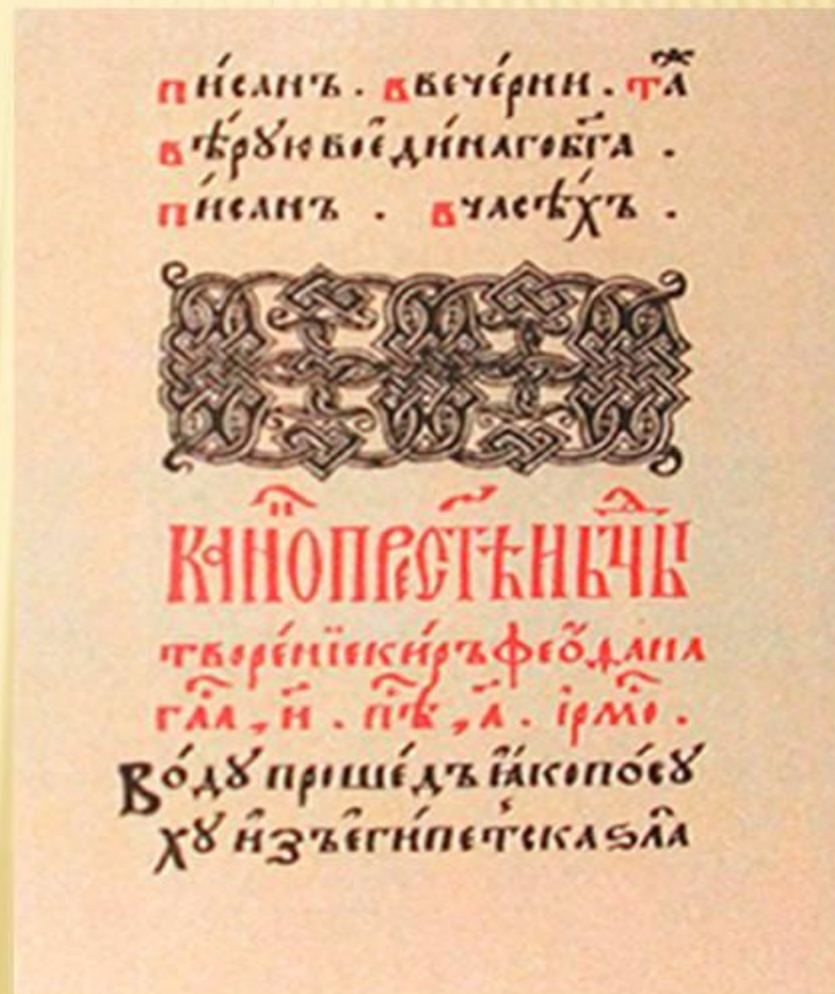 пи́санъ . ввече́рни . та́ж
вѣ́рꙋювоеди́нагобг҃а .
пи́санъ . вчасѣ́хъ .
КАНОПРЕСТѢНЬЧЬ
творе́нїеки́ръфео̑дана
гла̑, и҃ . пѣ̑, а҃ . ірмо̑ .
Во́дꙋпроше́дъꙗ҆́копо́сꙋ
хꙋ и҆зъе҆ги́петскаѕла̀